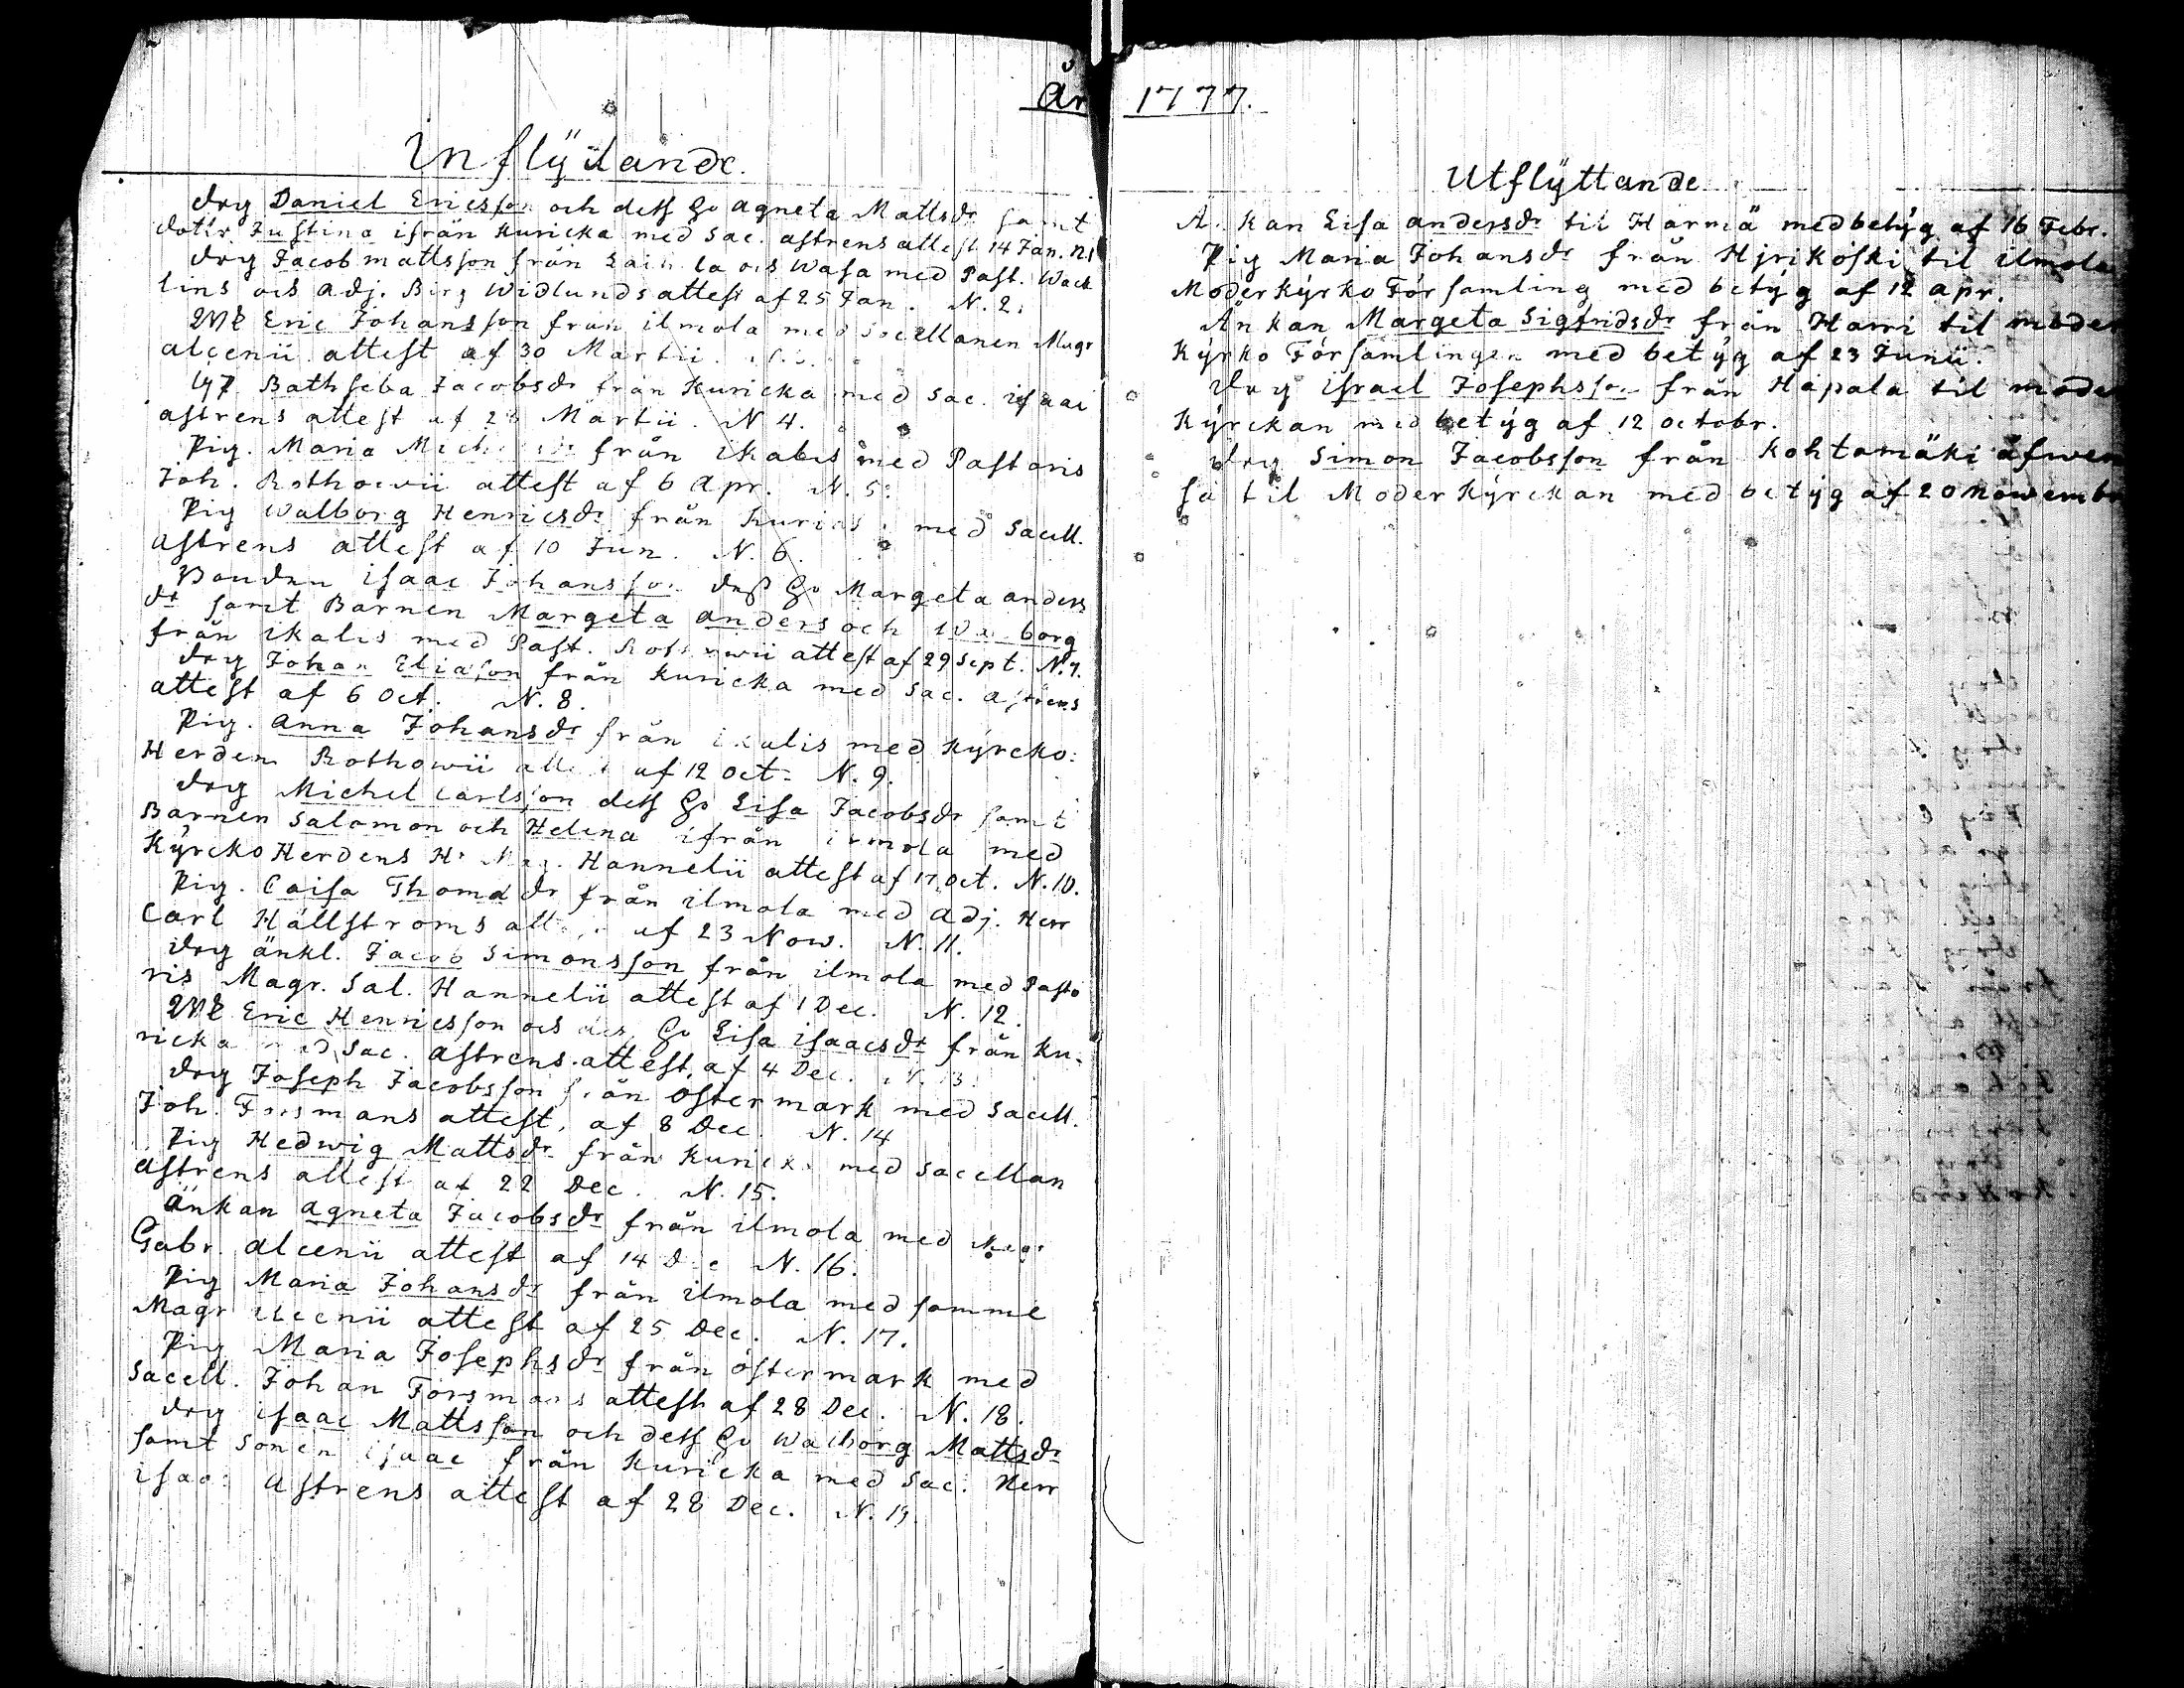 År 1777.
Inflÿtande.
drg Daniel Ericsson och dess Hu Agneta Mattsdr samt
dottr. Justina ifrån Kuricka med Sac. Astrens attest 14 Jan. N.1
drg Jacob Mattsson från Wasa med Past. Wack
lins och Adj. Widlunds attest af 25 Jan. N. 2.
Eric Johansson från ilmola med Sacellanen Magr
Alcenii attest af 30 Martii.
Bathseba Jacobsdr från Kuricka med Sac. isaac
Astrens attest af Martii. N 4.
Pig. Maria från ikalis med Pastoris
Joh. Rothovii attest af 6 Apr. N. 5.
Pig Walborg Henricsdr från med Sacell.
Astrens attest af 10 Jun. N. 6.
Bonden isaac Johansson dess Hu Margeta Anders
dr samt Barnen Margeta Anders och
från ikalis med Past. attest af 29 Sept. N. 7.
drg Johan Eliasson från Kuricka med Sac. Astrens
attest af 6 Oct. N. 8.
Pig. Anna Johansdr från ikalis med Kÿrcko:
Herden Rothowii af 12 Oct. N. 9.
drg Michel Carlsson dess Hu Lisa Jacobsdr samt
Barnen Salomon och Helena ifrån med
Kÿrcko Herdens Hr Mag. Hannelii attest af 17 Oct. N. 10.
Pig. Caisa Thomadr från ilmola med Adj. Herr
Carl Hällströms af 23 Now. N. 11.
drg änkl. Jacob Simonsson från ilmola med Pasto
ris Magr. Sal. Hannelii attest af 1 Dec. N. 12.
Eric Henricsson och Hu Lisa isaacsdr från Ku-
ricka med Sac. Astrens attest af 4 Dec. N. 13.
drg Joseph Jacobsson från östermark med Sacell.
Joh. Forsmans attest, af 8 Dec. N. 14
Pig Hedwig Mattsdr från Kuricka med Sacellan
Astrens attest af 22 Dec. N. 15.
Änkan Agneta Jacobsdr från ilmola med Magr
Gabr. Alcenii attest af 14 N. 16.
Pig Maria Johansdr från ilmola med samme
Magr Alcenii attest af 25 Dec. N. 17.
Pig Maria Josephsdr från östermark med
Sacell. Johan Forsmans attest af 28 Dec. N. 18.
drg isaac Mattsson och dess Hu Walborg Mattsdr
samt Sonen isaac från Kuricka med Sac. Herr
isaac Astrens attest af 28 Dec. N. 19.
Utflÿttande
Änkan Lisa Andersdr til Härmä med betÿg af 16 Febr.
Pig Maria Johansdr från til ilmola
Moderkÿrko Församling med betÿg af 12 apr.
Änkan Margeta Sigfridsdr från Harri til moder
Kÿrko Församlingen med betÿg af 23 Junii.
drg israel Josephsson från Hapala til moder
Kÿrckan med betÿg af 12 octobr.
drg Simon Jacobsson från Kohtamäki äfwen
så til Moder Kÿrckan med betÿg af 20 Nowembr